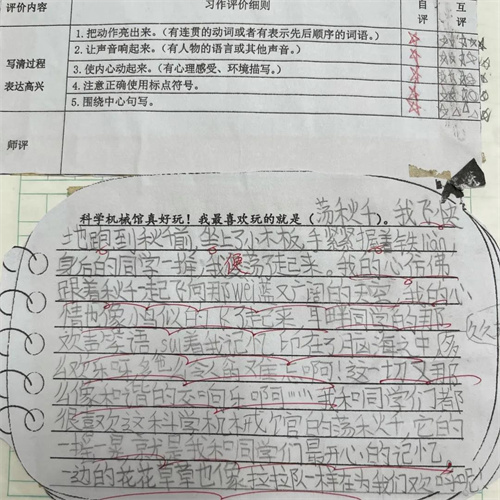 评价内容 习作评价细则 自评 互评
写清过程 表达高兴
1.把动作亮出来。(有连贯的动词或者有表示先后顺序的词语。)
2.让声音响起来。(有人物的语言或其他声音。)
3.使内心动起来。(有心理感受、环境描写。)
4.注意正确使用标点符号。
5.围绕中心句写。
师评
科学机械馆真好玩!我最喜欢玩的就是(荡秋千)。我飞快
地跑到秋千前,坐上了小木板,手紧紧握着铁lian
身后的同学一推,我便荡起来。我的心仿佛
跟着秋千一起飞向那wei蓝又广阔的天空。我的心
情也像小鸟似的飞了起来,耳畔同学们的那
欢声笑语,sui着我记 印在了脑海之中
这一切又那
么像和谐的交响乐啊 我和同学们都
很喜欢这科学机械官的荡秋千,它的
一摇一晃就是我和同学们最开心的记忆
一边的花花草草也像拉拉队一样在为我们欢呼呢!